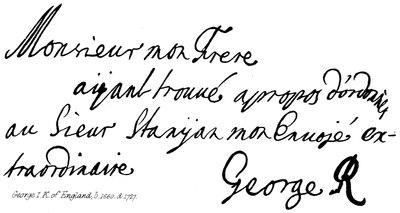 Monsieur mon Frere
aijant trouvé apropos d'ordonner
au Sieur Stanijan mon Envoijé ex-
traordinaire
George R
George I. K. of England, b. 1660. d. 1727.